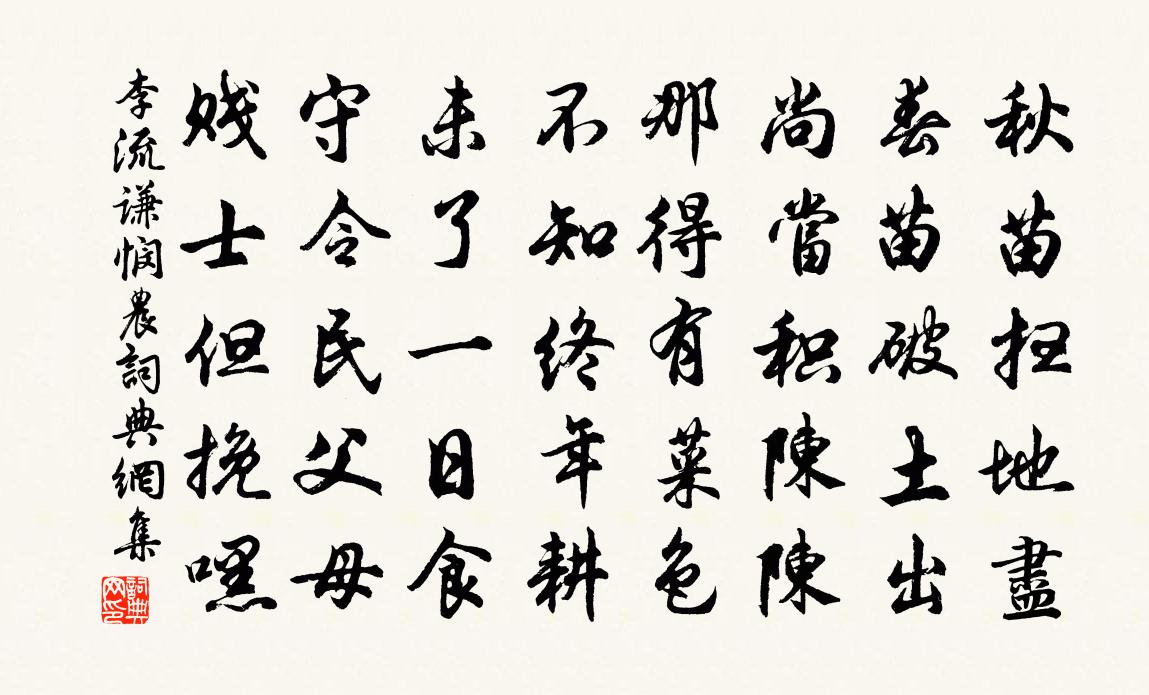 秋苗扫地盡
春苗破土出
尚當积陳陳
那得有菜色
不知终年耕
未了一日食
守令民父母
贱士但挽嘿
李流谦悯農詞典網集
詞典网印